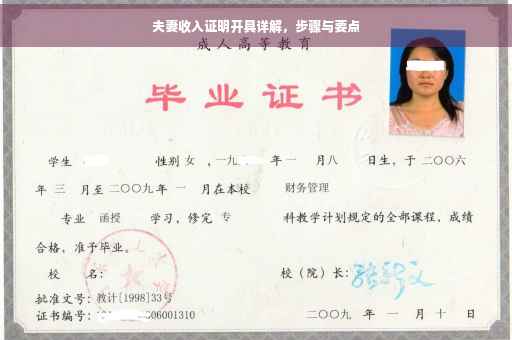 夫妻收入证明开具详解，步骤与要点
成人高等教育
毕业证书
学生 性别 女 ，一九 年 一 月八 日生，于 二〇〇六
年 三 月至 二〇〇九 年 一 月在本校 财务管理
专业 函授 学习，修完 专 科教学计划规定的全部课程，成绩
合格，准予毕业。
校 名： 校（院）长：
批准文号：教计[1998]33号
证书编号： 06001310 二〇〇九 年 一 月 十 日